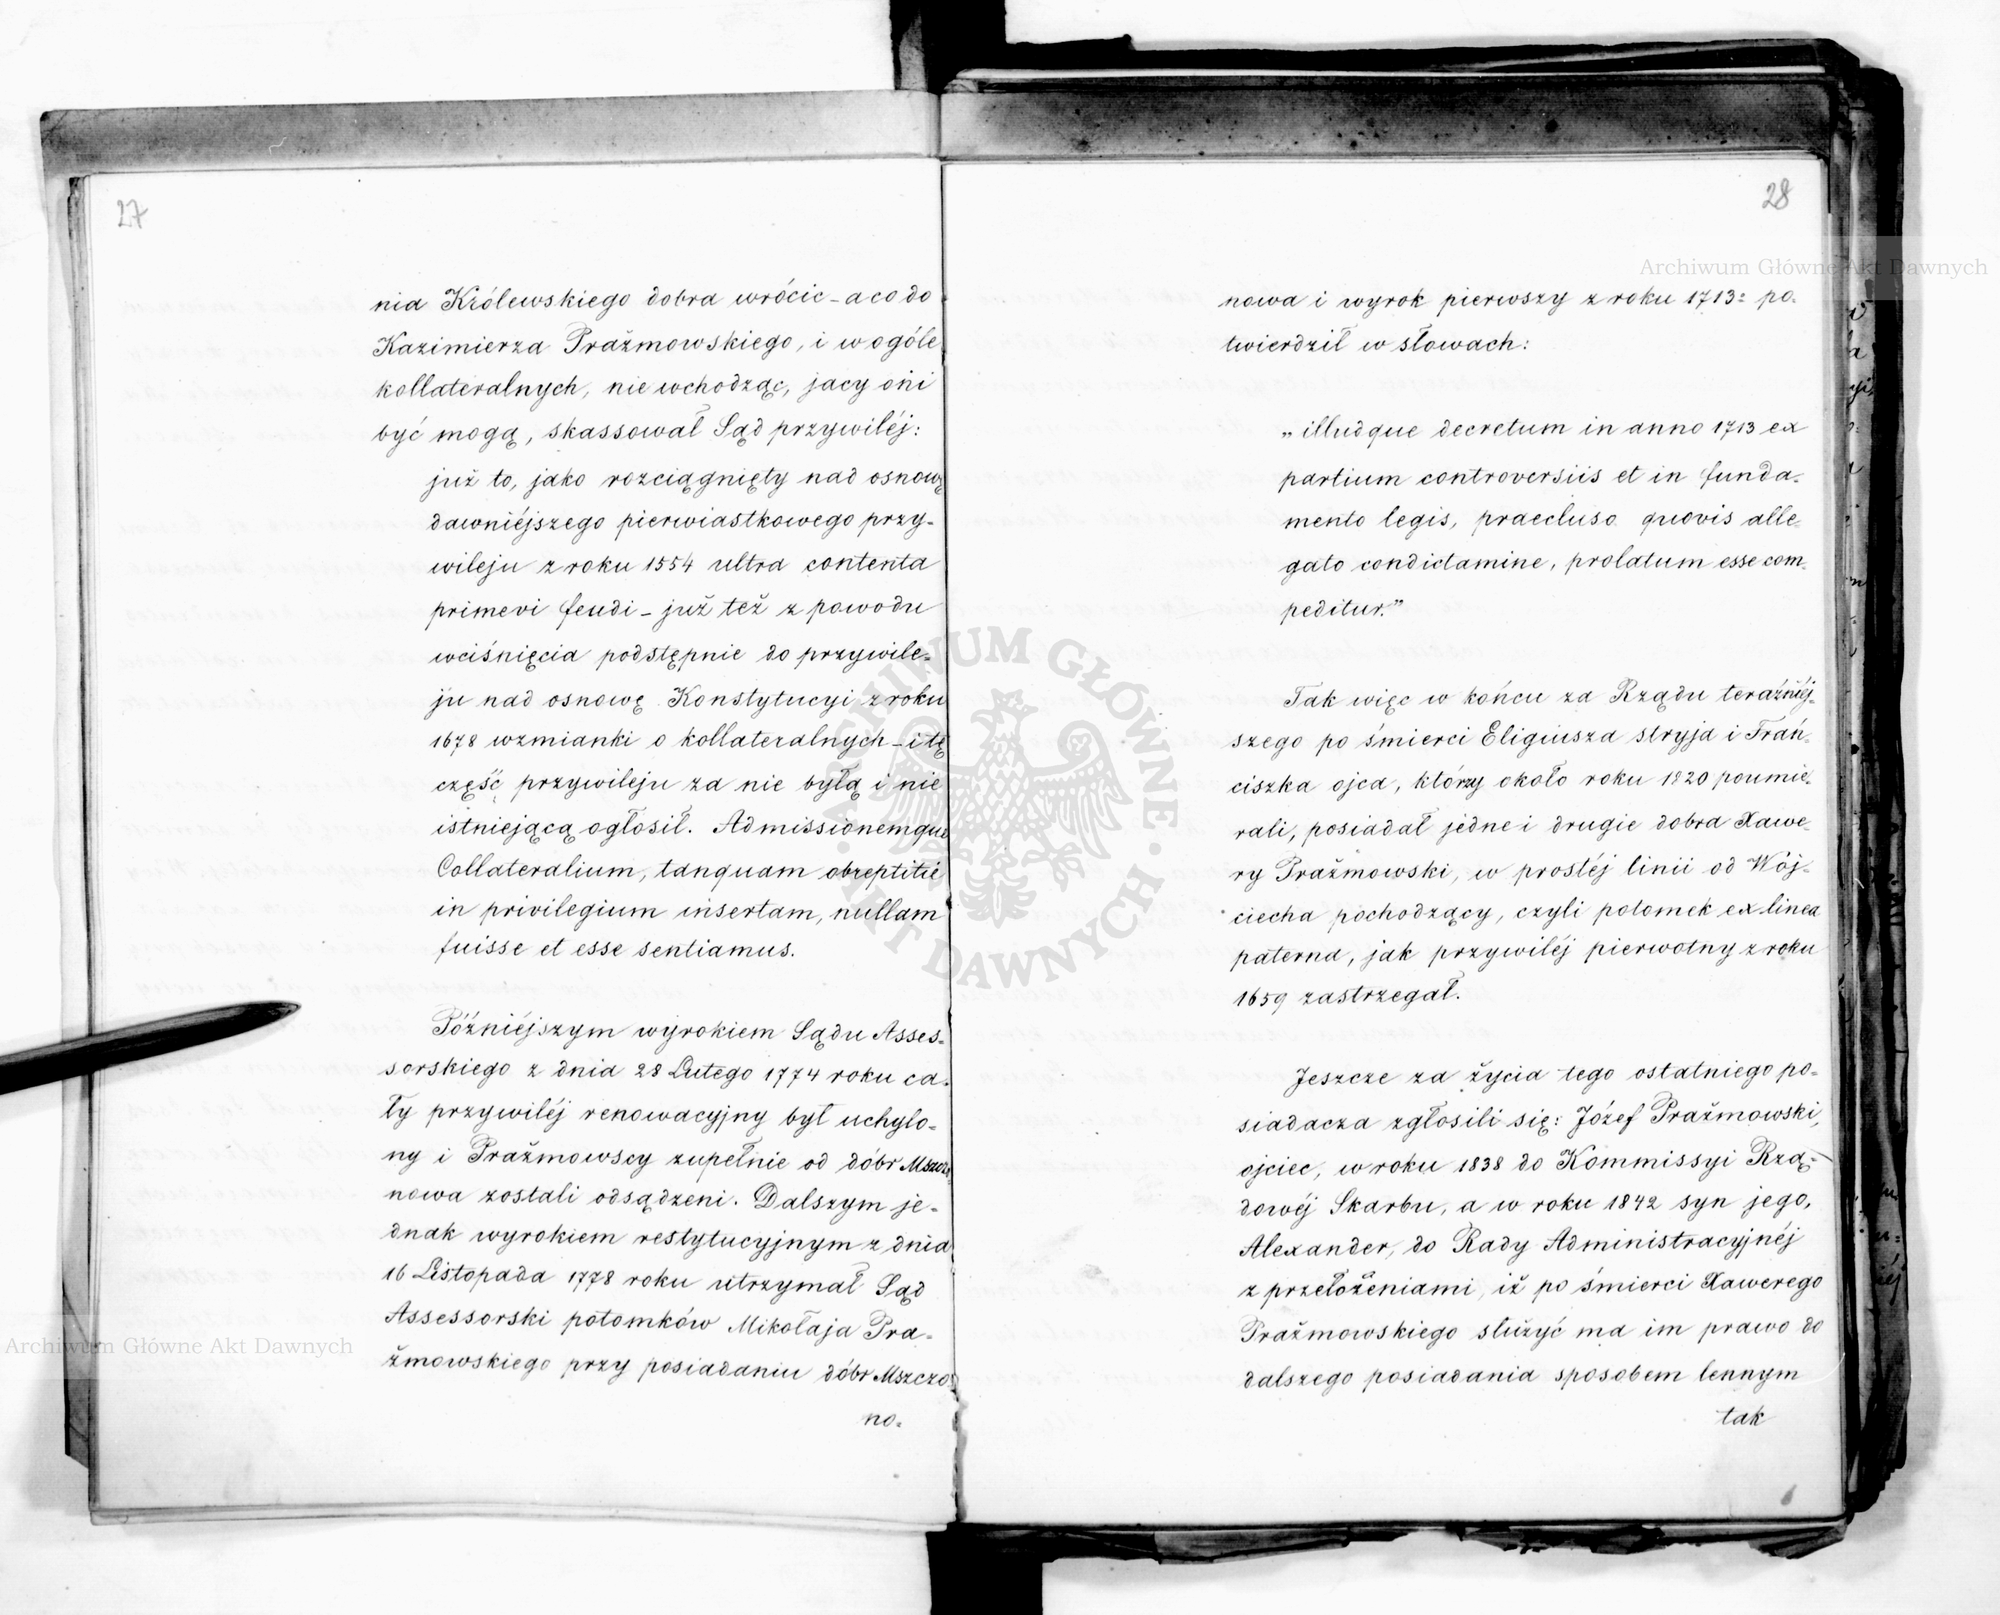 27
nia Królewskiego dobra wrócić – a co do
Kazimierza Prażmowskiego, i w ogóle
kollateralnych, nie wchodząc, jacy oni
być mogą, skassował Sąd przywiléj:
już to, jako rozciągnięty nad osnowę
dawniéjszego pierwiastkowego przy-
wileju z roku 1554 ultra contenta
primevi feudi – już też z powodu
wciśnięcia podstępnie do przywile-
ju nad osnowę Konstytucyi z roku
1678 wzmianki o kollateralnych – i tę
część przywileju za nie byłą i nie
istniejącą ogłosił. Admissionemque
Collateralium, tanquam obreptitié
in privilegium insertam, nullam
fuisse et esse sentiamus.
Późniéjszym wyrokiem Sądu Asses-
sorskiego z dnia 28 Lutego 1774 roku ca-
ły przywiléj renowacyjny był uchylo-
ny i Prażmowscy zupełnie od dóbr Mszczo-
nowa zostali odsądzeni. Dalszym je-
dnak wyrokiem restytucyjnym z dnia
16 Listopada 1778 roku utrzymał Sąd
Assessorski potomków Mikołaja Pra-
żmowskiego przy posiadaniu dóbr Mszczo-
no-
28
nowa i wyrok pierwszy z roku 1713: po-
twierdził w słowach:
„illudque decretum in anno 1713 ex
partium controversiis et in funda-
mento legis, praecluso quovis alle-
gato condictamine, prolatum esse com-
peditur."
Tak więc w końcu za Rządu teraźniéj-
szego po śmierci Eligiusza stryja i Frań-
ciszka ojca, którzy około roku 1820 poumie-
rali, posiadał jedne i drugie dobra Xawe-
ry Prażmowski, w prostéj linii od Wój-
ciecha pochodzący, czyli potomek ex linea
paterna, jak przywiléj pierwotny z roku
1659 zastrzegał.
Jeszcze za życia tego ostatniego po-
siadacza zgłosili się: Józef Prażmowski,
ojciec, w roku 1838 do Kommissyi Rzą-
dowéj Skarbu, a w roku 1842 syn jego,
Alexander, do Rady Administracyjnéj
z przełożeniami, iż po śmierci Xawerego
Prażmowskiego służyć ma im prawo do
dalszego posiadania sposobem lennym
tak
Archiwum Główne Akt Dawnych
Archiwum Główne Akt Dawnych
ARCHIWUM GŁÓWNE AKT DAWNYCH